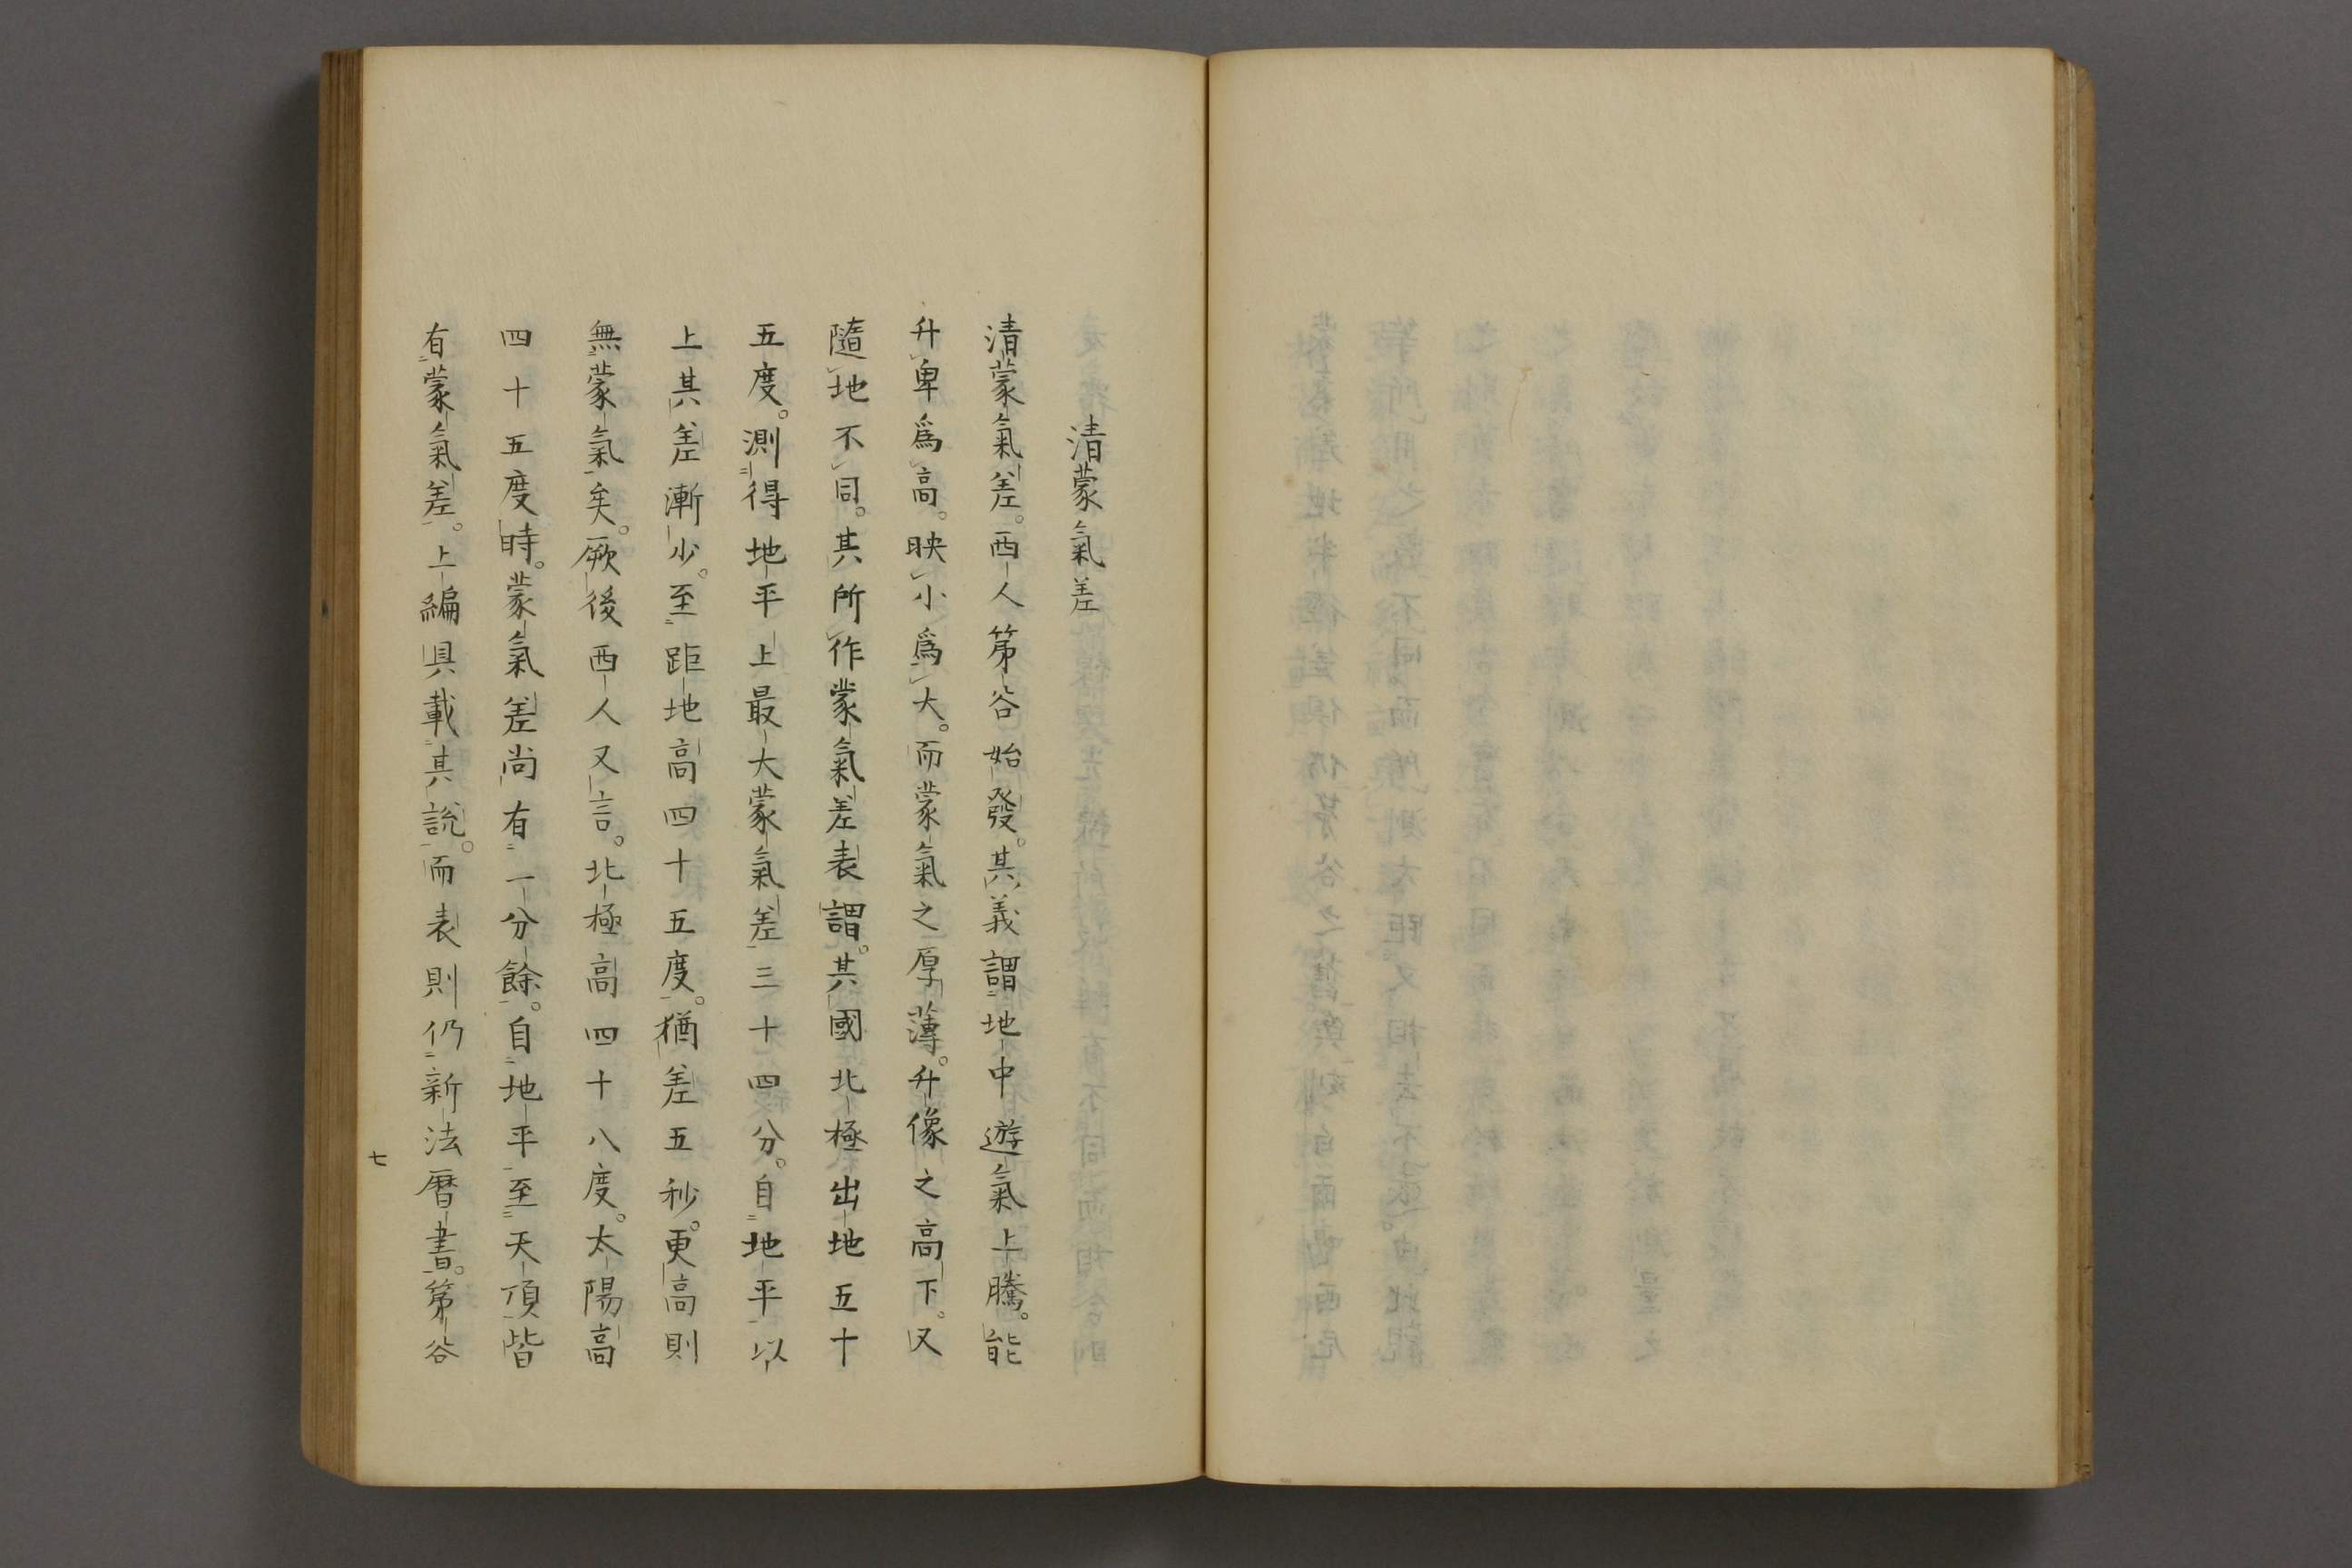 清蒙氣差
清蒙氣差。西人第谷始發。其義謂地中遊氣上騰。能
升卑爲高。映小爲大。而蒙氣之厚薄。升像之高下。又
隨地不同。其所作蒙氣差表謂。其國北極出地五十
五度。測得地平上最大蒙氣差三十四分。自地平以
上其差漸少。至距地高四十五度。猶差五秒。更高則
無蒙氣矣。厥後西人又言。北極高四十八度。太陽高
四十五度時。蒙氣差尚有一分餘。自地平至天頂皆
有蒙氣差。上編具載其說。而表則仍新法曆書。第谷
七